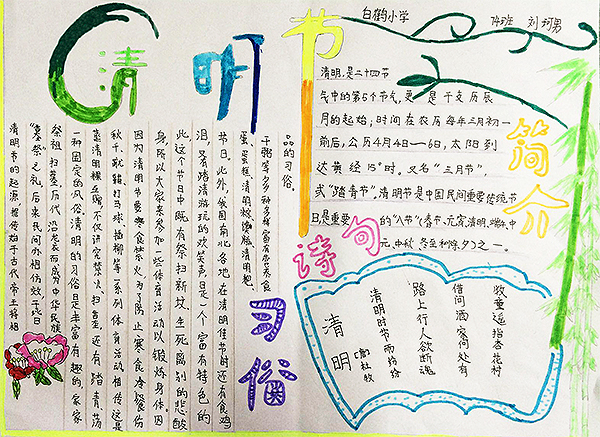 白鹤小学 74班 刘珂男
清明节
简介
清明,是二十四节
气中的第5个节气,更是干支历辰
月的起始;时间在农历每年三月初一
前后,公历4月4日—6日,太阳到
达黄经15°时。又名“三月节”,
或“踏青节”,清明节是中国民间重要传统节
日是重要的“八节”(春节、元宵、清明、端午、中
元、中秋、冬至和除夕)之一。
习俗
清明节的起源,据传始于古代帝王将相
“墓祭”之礼,后来民间亦相仿效,于此日
祭祖扫墓,历代沿袭而成为中华民族
一种固定的风俗。清明的习俗是丰富有趣的,家家
蒸清明粿互赠,不仅讲究禁火、扫墓,还有踏青、荡
秋千、蹴鞠、打马球、插柳等系列体育活动。相传这是
因为清明节要寒食禁火,为了防止寒食冷餐伤
身,所以大家来参加一些体育活动,以锻炼身体。因
此,这个节日中既有祭扫新坟生死离别的悲酸
泪,又有踏青游玩的欢笑声,是一个富有特色的
节日。此外,我国南北各地在清明佳节时还有食鸡
蛋、蛋糕、清明粽、馍糍、清明粑、
干粥等多种多样富有营养食
品的习俗。
诗句
清明
唐 杜牧
清明时节雨纷纷
路上行人欲断魂
借问酒家何处有
牧童遥指杏花村